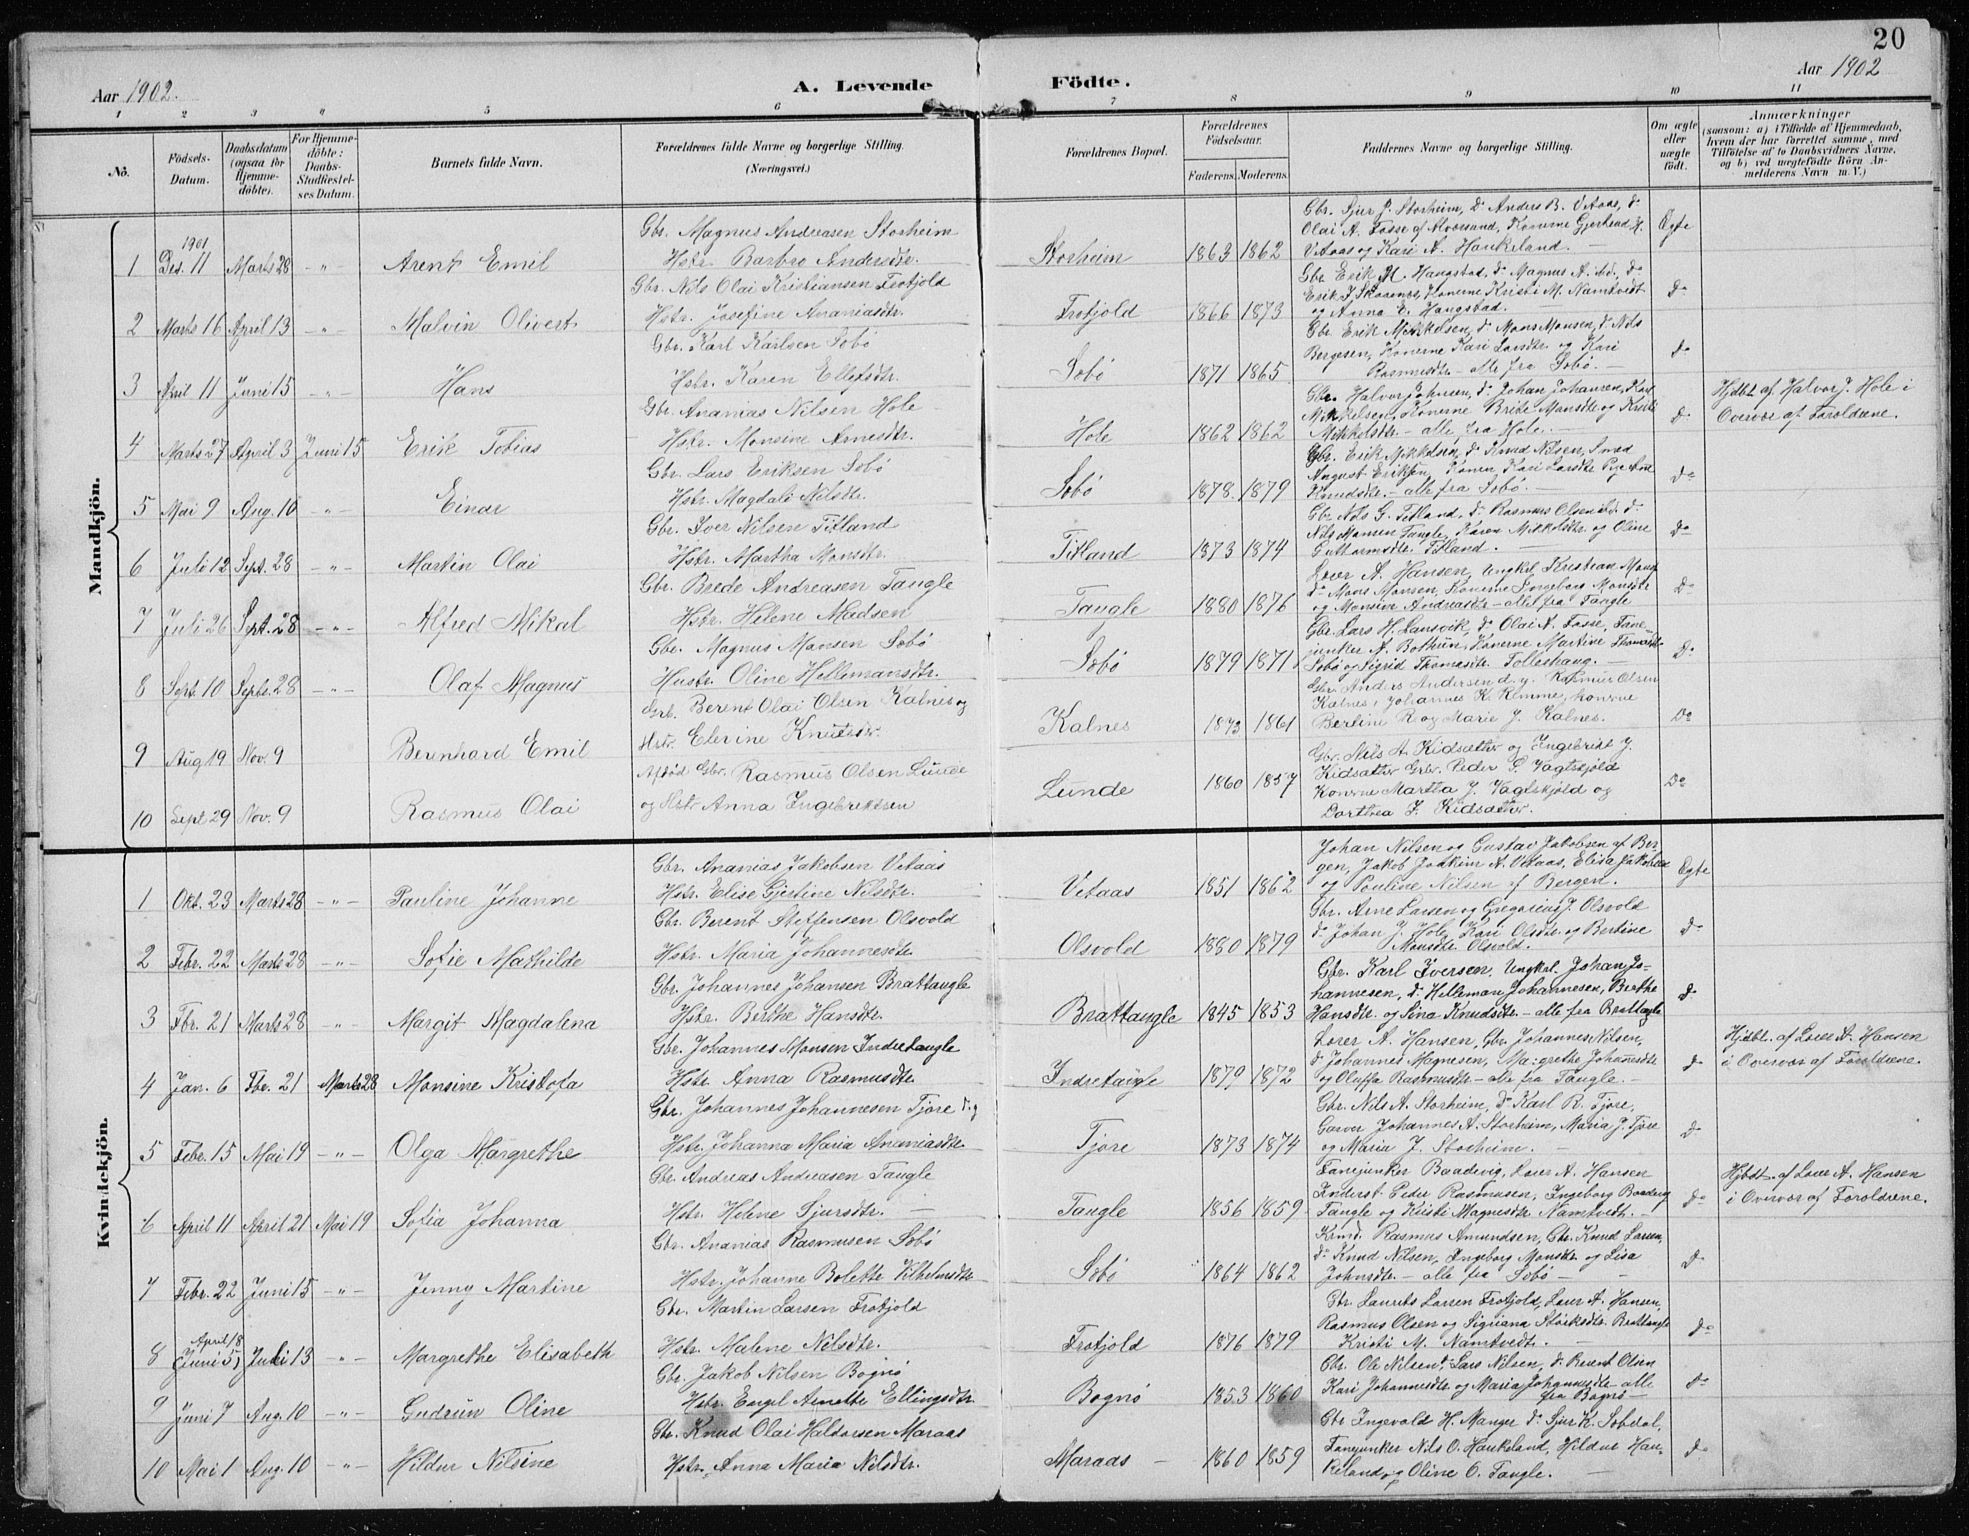 20
Aar 1902.
A. Levende
Födte.
Aar 1902
1 2 3 " 5 6 7 8 9 10 11
No.
Födsels-
Datum.
Daabsdatum
(ogsaa for
Hjemme-
döbte).
For Hjemme-
döbte:
Daabs-
Stadfæstel-
ses Datum.
Barnets fulde Navn.
Forældrenes fulde Navne og borgerlige Stilling.
(Næringsvei.)
Forældrenes Bopæl.
Forældrenes
Födselsaar.
Faderens. Moderens.
Faddernes Navne og borgerlige Stilling.
Om ægte
eller
uægte
födt.
Anmærkninger
(saasom: a) i Tilfælde af Hjemmedaab,
hvem der har forrettet samme, med
Tilföielse af to Daabsvidners Navne,
og b) ved uægtefödte Börn An-
melderens Navn m. V.)
Mandkjön.
1901
1 Des. 11 Marts 28 - " - Arent Emil
Gbr. Magnus Andreasen Storheim
Hstr. Barbro Andersdtr.
Storheim 1863 1862
Gbr. Sjur J. Storheim, do Anders B. Vetaas, do
Olai A. Fosse af Alversund, Konerne Gjertrud H.
Vetaas og Kari A. Haukeland. -
Egte
2 Marts 16 April 13 - " - Malvin Olivert
Gbr. Nils Olai Kristiansen Frotjold
Hstr. Josefine Ananiasdtr.
Frotjold 1866 1873
Gbr. Erik H. Hangstad, do Magnus A. ibd., do
Erik J. Skarenes, Konerne Kristi M. Namtvedt
og Anna E. Hangstad.
do
3 April 11 Juni 15 - " - Hans
Gbr. Karl Karlsen Sobö
Hstr. Karen Ellefsdtr.
Sobö 1871 1865
Gbr. Erik Mikkelsen, do Mons Monsen, do Nils
Bergesen, Konerne Kari Larsdtr. og Kari
Rasmusdtr. - alle fra Sobö. -
do
4 Marts 27 April 3 Juni 15 Erik Tobias
Gbr. Ananias Nilsen Hole -
Hstr. Monsine Arnesdtr.
Hole 1862 1862
Gbr. Halvor Johnsen, do Johan Johansen, Karl
Mikkelsen, Konerne Brite Monsdtr og Kristi
Mikkelsdtr. - alle fra Hole. -
do
Hjdbt af Halvor J. Hole i
Overvær af Foroldrene.
5 Mai 9 Aug. 10 - " - Einar
Gbr. Lars Eriksen Sobö
Hstr. Magdali Nilsdtr.
Sobö 1878. 1879
Gbr. Erik Mikkelsen, do Knud Nilsen, Smed
August Eriksen, Konen Kari Larsdtr Pige
Knudsdtr. - alle fra Sobö. -
do
6 Juli 12 Sept. 28 - " - Martin Olai
Gbr. Iver Nilsen Titland
Hstr. Martha Monsdtr.
Titland 1873 1874
Gbr. Nils G. Titland, do Rasmus Olsen ibd. do
Nils Monsen Taugle, Karen Mikkelsdtr og Oline
Guttormsdtr. Titland. -
do
7 Juli 26 Sept. 28 - " - Alfred Mikal
Gbr. Brede Andreasen Taugle
Hstr. Helene Madsen
Taugle 1880 1876
Lærer A. Hansen, Ungkl. Kristian Mons
do Mons Monsen, Konerne Ingeborg Monsdtr
og Monsine Andreasdtr - alle fra Taugle
do
8 Sept. 10 Septs. 28 - " - Olaf Magnus
Gbr. Magnus Monsen Sobö
Hustr. Oline Hellemansdtr.
Sobö 1879 1871
Gbr. Lars H. Lansvik, do Olai A. Fosse, Fane-
junker A. Bothun, Konerne Martine Thomasdtr
Sobö og Sigrid Thomasdtr Tolleshaug. -
do
9 Aug 19 Nov. 9 Bernhard Emil
Gbr. Berent Olai Olsen Kalnes og
Hstr. Elerine Knutsdtr.
Kalnes 1873 1861
Gbr. Anders Andersen d. y. Rasmus Olsen
Kalnes, Johannes K. Kimme, konerne
Bertine R. og Marie J. Kalnes.
Do
10 Sept 29 Nov. 9 Rasmus Olai
Afdöd Gbr. Rasmus Olsen Lunde
og Hstr Anna Ingebriktsen
Lunde 1860 1857
Gbr. Nils A. Kidsætter og Ingebrikt J.
Kidsætter Gbr. Peder S. Vagtskjold
Konerne Martha J. Vagtskjold og
Dorthea J. Kidsætter.
Do
Kvindekjön.
1 Okt. 23 Marts 28 - " - Pauline Johanne
Gbr. Ananias Jakobsen Vetaas
Hstr. Elise Gjertine Nilsdtr.
Vetaas 1851 1862
Johan Nilsen og Gustav Jakobsen af Ber-
gen, Jakob Joakim A. Vetaas, Elisa Jakobsen
og Pauline Nilsen af Bergen.
Egte
2 Febr. 22 Marts 28 - " - Sofie Mathilde
Gbr. Berent Steffensen Olsvold
Hstr. Maria Johannesdtr
Olsvold 1880 1879
Gbr. Arne Larsen og Gregorius J. Olsvold
do Johan J. Hole, Kari Olsdtr og Bertine
Monsdtr Olsvold.
do
3 Fbr. 21 Marts 28 - " - Margit Magdalena
Gbr. Johannes Johansen Brattaugle
Hstr. Berthe Hansdtr.
Brattaugle 1845 1853
Gbr. Karl Iversen, Ungkal. Johan Jo-
hannesen, do Helleman Johannesen, Berthe
Hansdtr. og Sina Knudsdtr. - alle fra Brattaugle
do
4 Jan. 6 Fbr. 21 Marts 28 Monsine Kristofa
Gbr. Johannes Monsen Indretaugle
Hstr. Anna Rasmusdtr.
Indretaugle 1879 1872
Lærer A. Hansen, Gbr. Johannes Nilsen,
do Johannes Magnesen, Ma: grethe Johannesdtr
og Oluffa Rasmusdtr - alle fra Taugle. -
do
Hjdbt. af Lærer A. Hansen
i Overvær af Foroldrene.
5 Febr. 15 Mai 19 - " - Olga Margrethe
Gbr. Johannes Johannesen Tjore d. y
Hstr. Johanna Maria Ananiasdtr.
Tjore 1873 1874
Gbr. Nils A. Storheim, do Karl R. Tjore,
Garver Johannes A. Storheim, Maria J. Tjore
og Maria J. Storheim. -
do
6 April 11 April 21 Mai 19 Sofia Johanna
Gbr. Andreas Andreasen Taugle
Hstr. Helene Sjursdtr. -
Taugle 1856 1859
Fanejunker Baadevig, Lærer A. Hansen
Inderst Peder Rasmusen, Ingeborg Baadevig
Taugle og Kristi Magnesdtr Namtvedt. -
do
Hjdbt. af Lærer A. Hansen
i Overvær af Foroldrene.
7 Febr. 22 Juni 15 - " - Jenny Martine
Gbr. Ananias Rasmusen Sobö
Hstr. Johanne Bolette Vilhelmsdtr
Sobö 1864 1862
Rasmus Amundsen, Gbr. Knud Larsen,
do Knud Nilsen, Ingeborg Monsdtr og Lisa
Johnsdtr. - alle fra Sobö -
do
April 18
8 (Juni 5) Juli 13 - " - Margrethe Elisabeth
Gbr. Martin Larsen Frotjold
Hstr. Malene Nilsdtr.
Frotjold 1876 1879
Gbr. Laurits Larsen Frotjold, Lærer A. Hansen,
Rasmus Olsen og Sigriana Störksdtr. Brattaugle
Kristi M. Namtvedt. -
do
9 Juni 7 Aug. 10 - " - Gudrun Oline
Gbr. Jakob Nilsen Bognö
Hstr. Engel Arnette Ellingsdtr.
Bognö 1853 1860
Gbr. Ole Nilsen, Lars Nilsen, do Berent Olsen
Kari Johannesdtr og Maria Johannesdtr - alle
fra Bognö -
do
10 Mai 1 Aug. 10 - " - Hildur Nilsine
Gbr. Knud Olai Haldorsen Maraas
Hstr. Anna Maria Nilsdtr.
Maraas - 1860 1859
Gbr Ingevald H. Manger do Sjur K. Sobdal,
Fanejunker Nils O. Haukeland, Hildur Hau-
keland og Oline O. Taugle. -
do